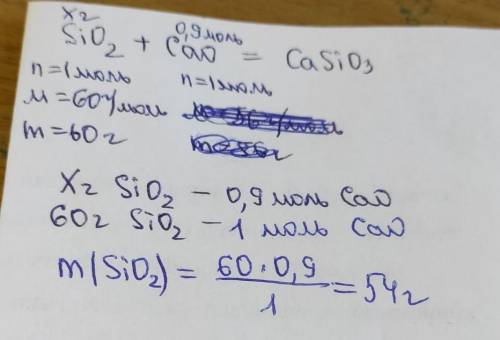 x г 0,9 моль
SiO₂ + CaO = CaSiO₃
n = 1 моль n = 1 моль
M = 60 г/моль
m = 60 г
x г SiO₂ – 0,9 моль CaO
60 г SiO₂ – 1 моль CaO
m(SiO₂) = 60 · 0,9 / 1 = 54 г